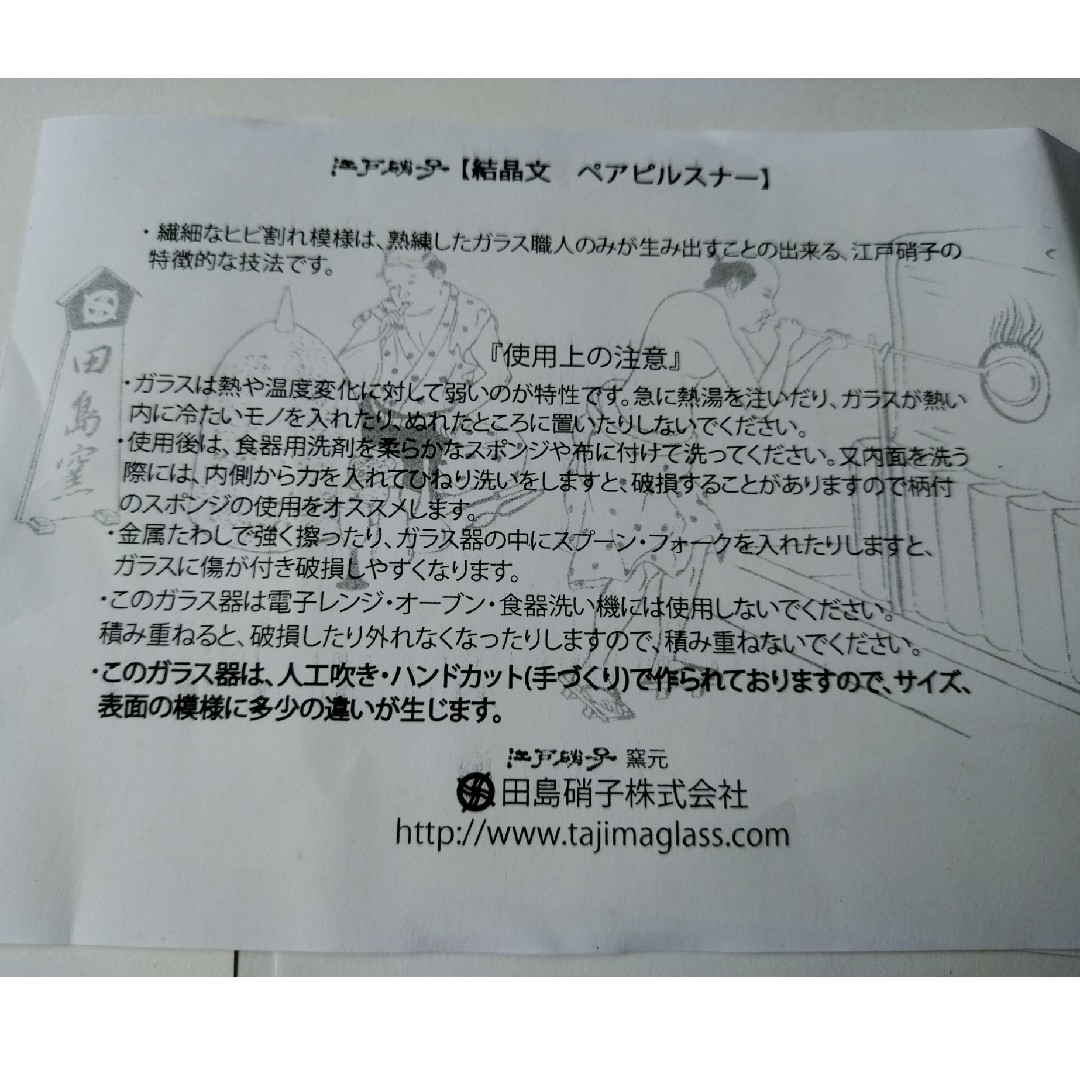 江戸硝子【結晶文　ペアピルスナー】
・繊細なヒビ割れ模様は、熟練したガラス職人のみが生み出すことの出来る、江戸硝子の
特徴的な技法です。
田島窯
『使用上の注意』
・ガラスは熱や温度変化に対して弱いのが特性です。急に熱湯を注いだり、ガラスが熱い
内に冷たいモノを入れたり、ぬれたところに置いたりしないでください。
・使用後は、食器用洗剤を柔らかなスポンジや布に付けて洗ってください。又内面を洗う
際には、内側から力を入れてひねり洗いをしますと、破損することがありますので柄付
のスポンジの使用をオススメします。
・金属たわしで強く擦ったり、ガラス器の中にスプーン・フォークを入れたりしますと、
ガラスに傷が付き破損しやすくなります。
・このガラス器は電子レンジ・オーブン・食器洗い機には使用しないでください。
積み重ねると、破損したり外れなくなったりしますので、積み重ねないでください。
・このガラス器は、人工吹き・ハンドカット(手づくり)で作られておりますので、サイズ、
表面の模様に多少の違いが生じます。
江戸硝子 窯元
田島硝子株式会社
http://www.tajimaglass.com